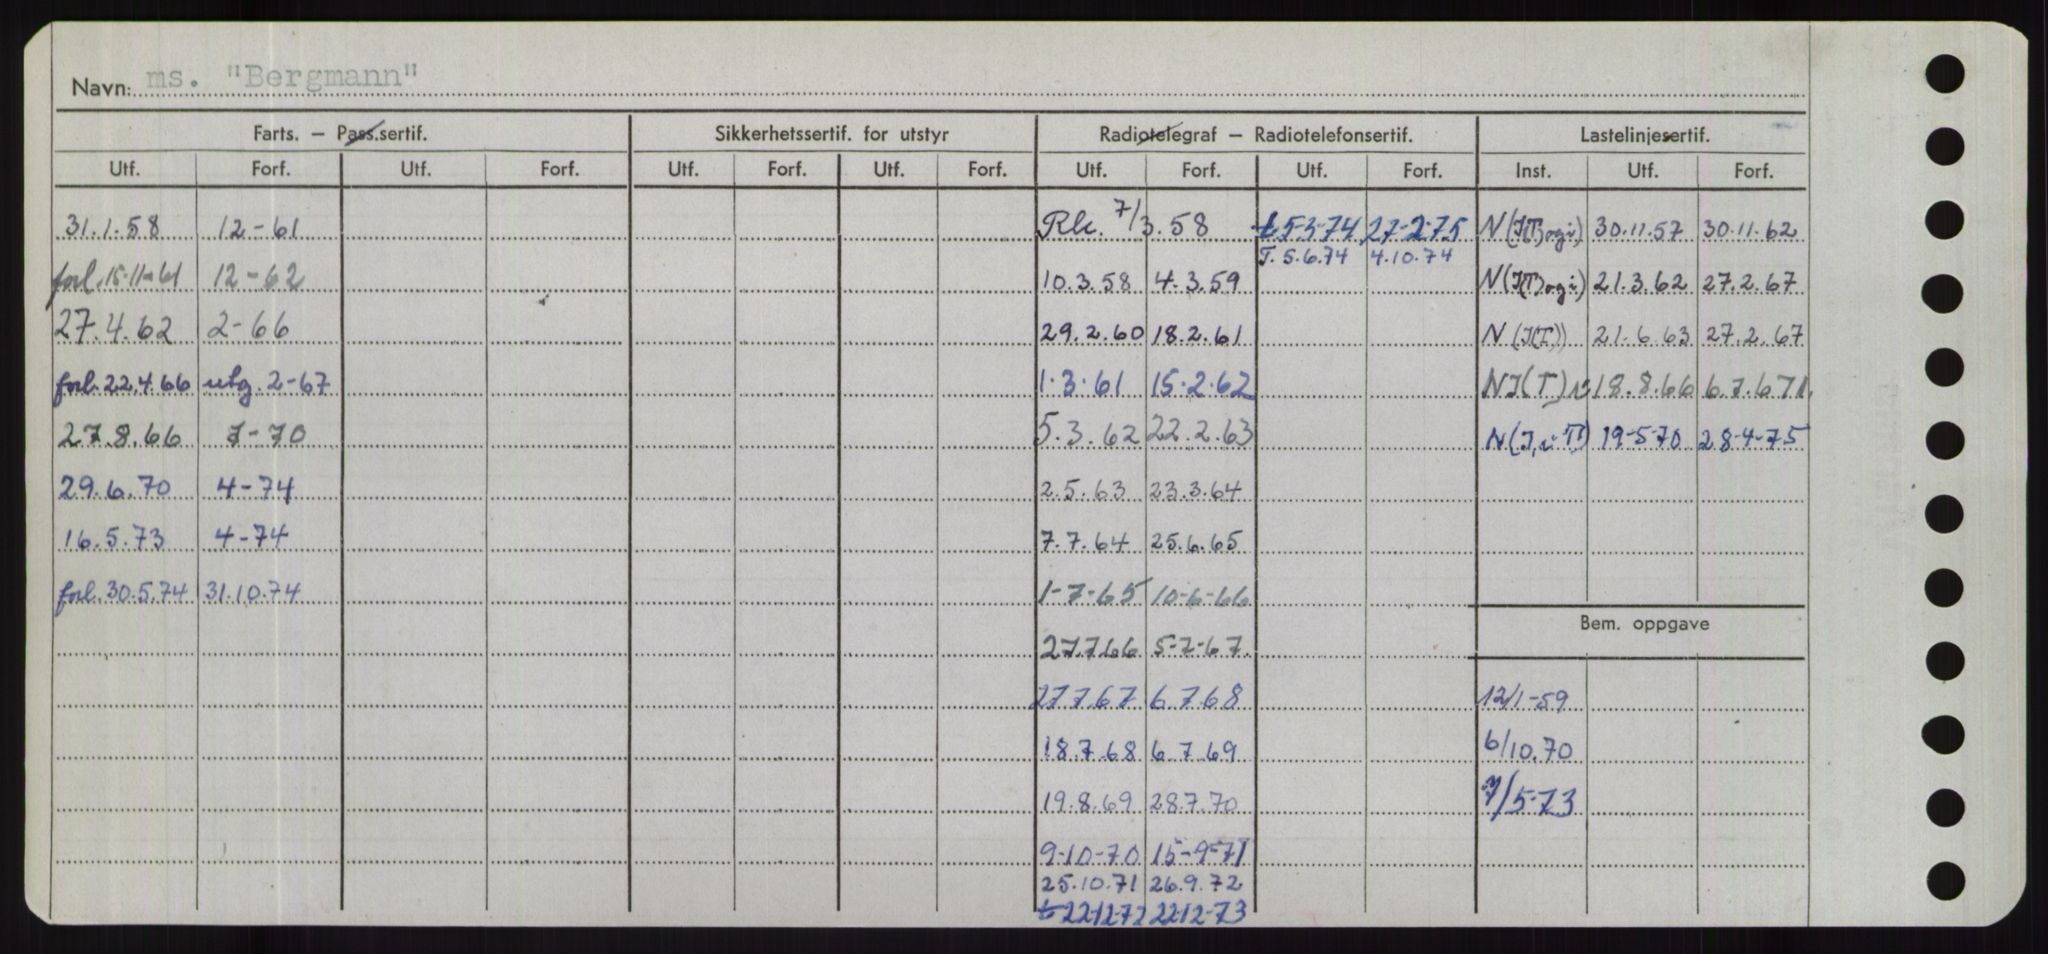 Navn: ms. "Bergmann"
Farts. – Pass.sertif. Sikkerhetssertif. for utstyr Radiotelegraf – Radiotelefonsertif. Lastelinjesertif.
Utf. Forf. Utf. Forf. Utf. Forf. Utf. Forf. Utf. Forf. Utf. Forf. Inst. Utf. Forf.
31.1.58 12-61 7/3.58 t 5-3-74 27-2-75 30.11.57 30.11.62
T. 5.6.74 4.10.74
forl. 15-11-61 12-62 10.3.58 4.3.59 21.3.62 27.2.67
27.4.62 2-66 29.2.60 18.2.61 21.6.63 27.2.67
forl. 22.4.66 utg. 2-67 1.3.61 15.2.62 18.8.66
27.8.66 7-70 5.3.62 22.2.63 19-5-70 28-4-75
29.6.70 4-74 2.5.63 23.3.64
16.5.73 4-74 7.7.64 25.6.65
forl. 30.5.74 31.10.74 1-7-65 10-6-66
Bem. oppgave
27.7.66 5-7-67
27.7.67 6.7.68 12/1-59
18.7.68 6.7.69 6/10.70
19.8.69 28.7.70 /5-73
9-10-70 15-9-71
25.10.71 26.9.72
t 22-12-72 22-12-73